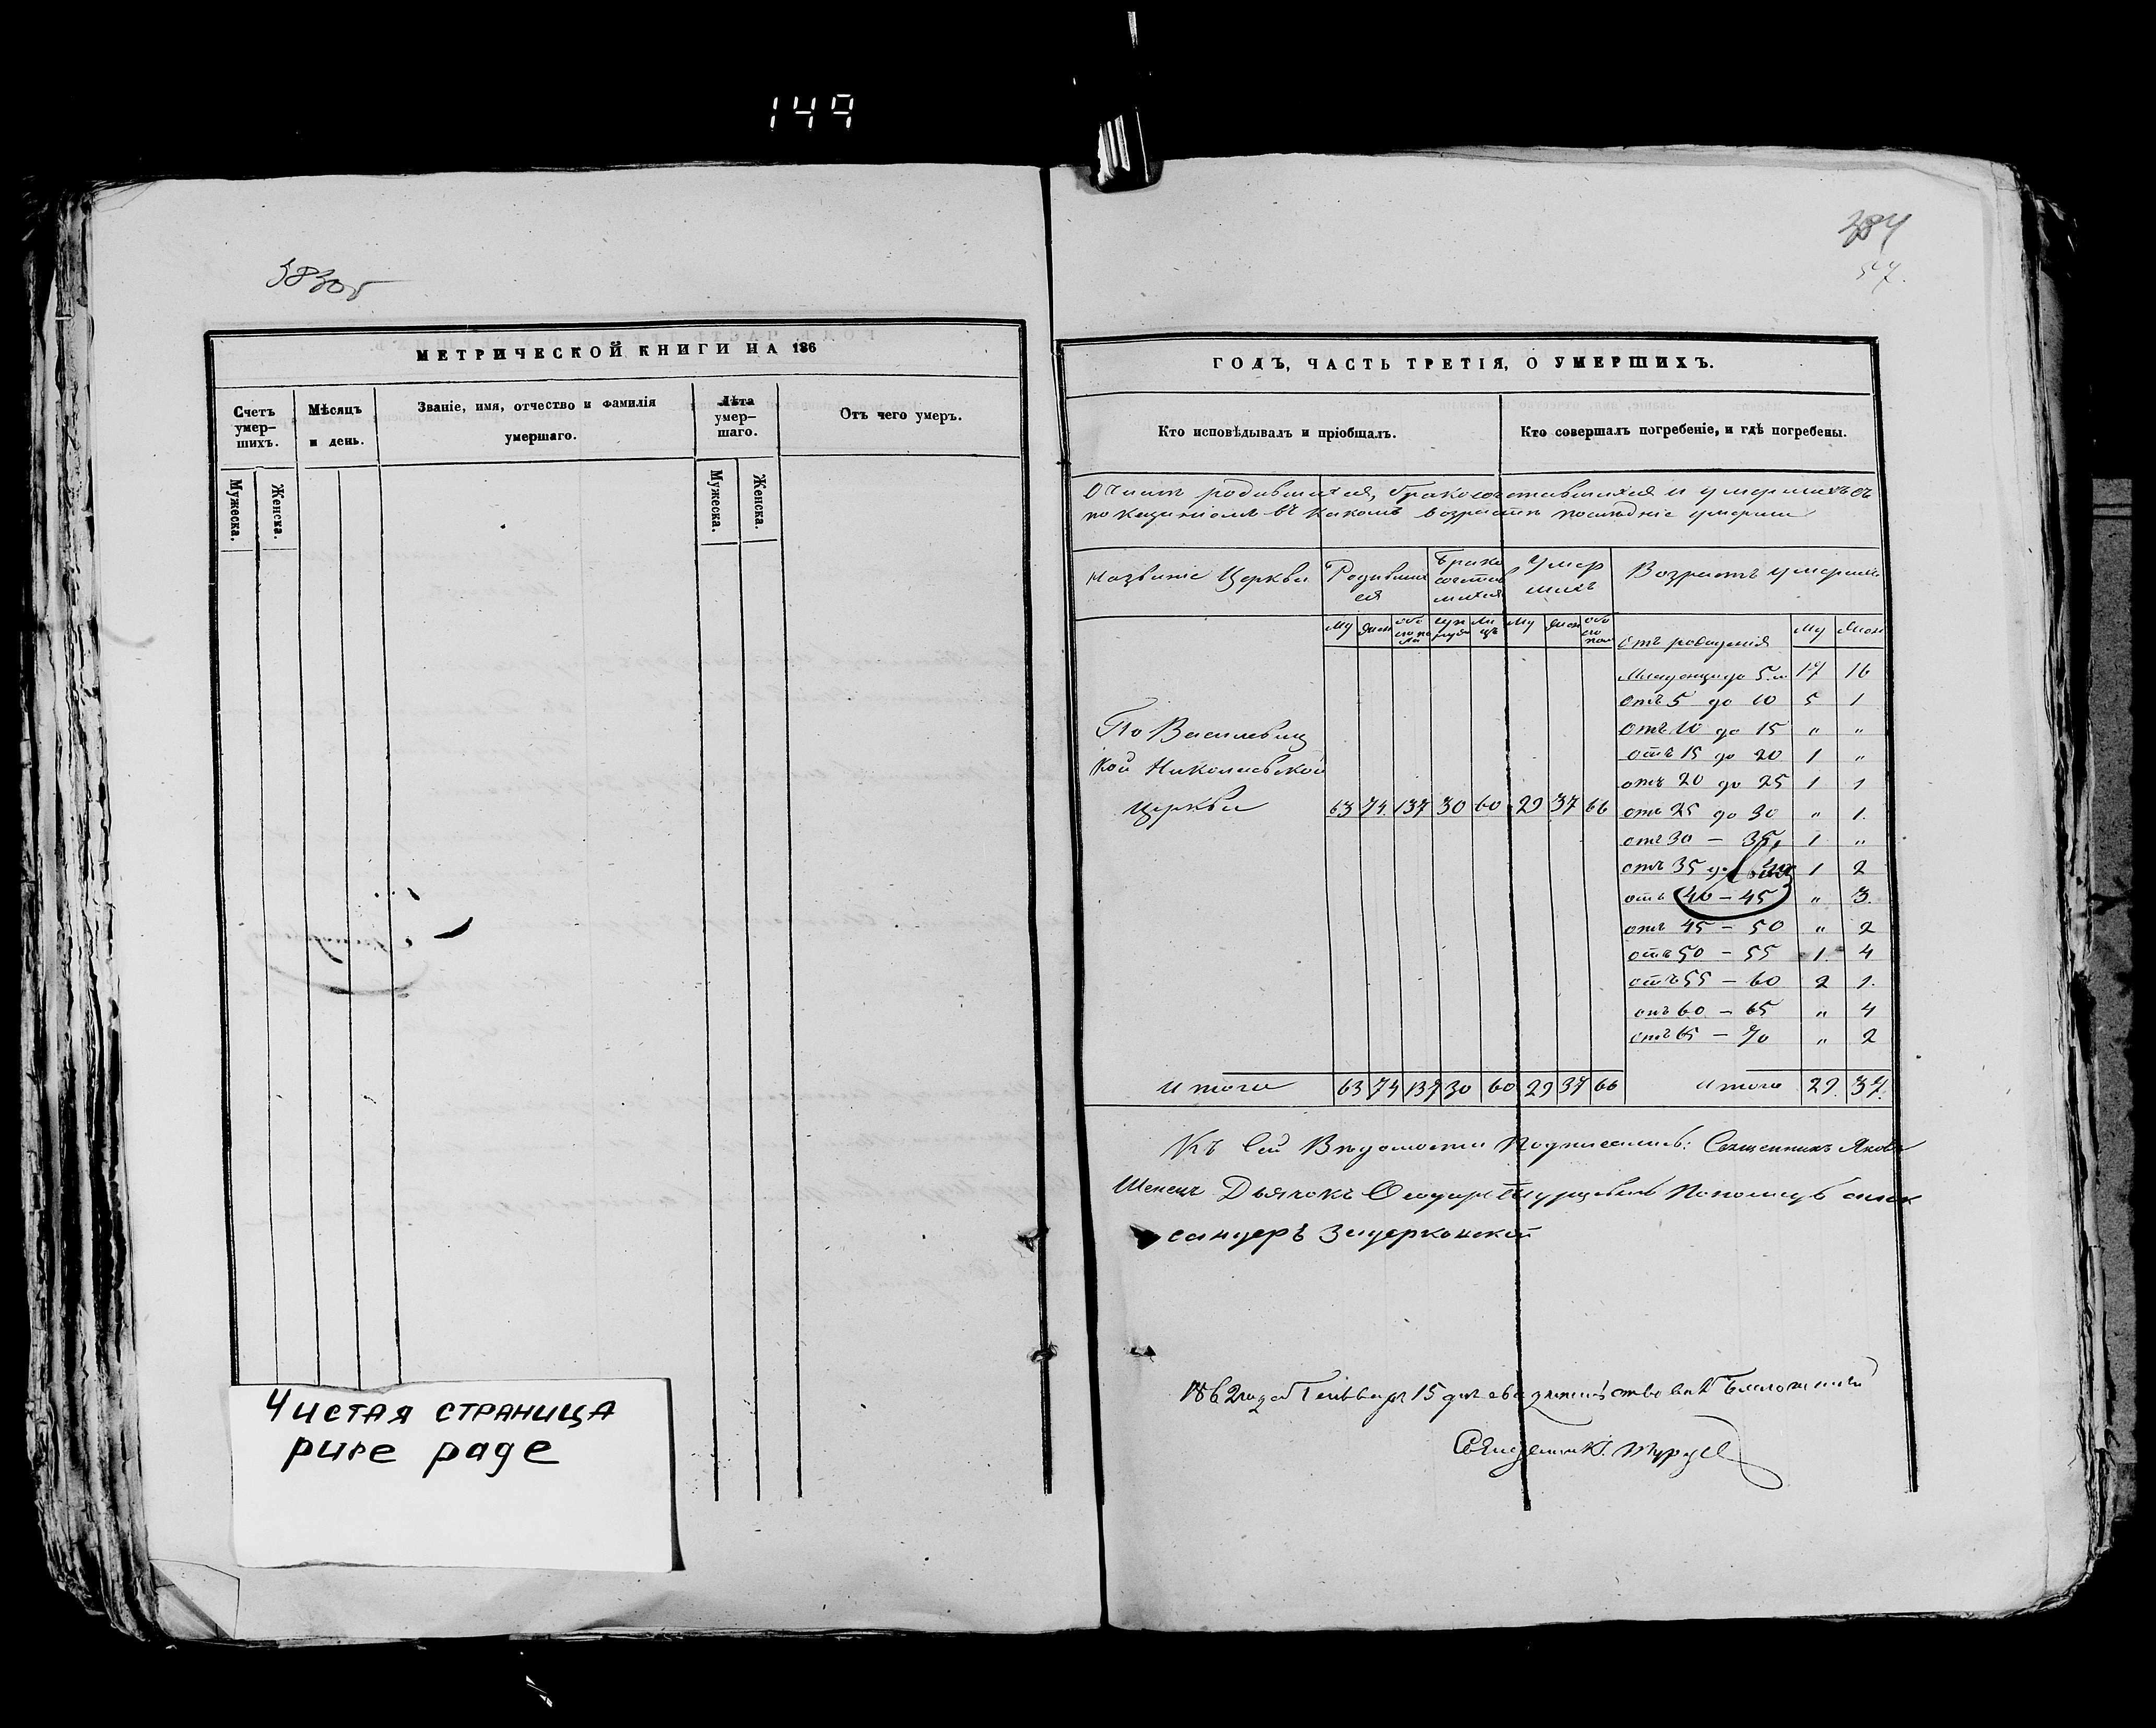 149
383об
МЕТРИЧЕСКОЙ КНИГИ НА 186
Счетъ умер-шихъ.
Мѣсяцъ и день.
Званіе, имя, отчество и фамилія умершаго.
Лѣта умер-шаго.
Отъ чего умеръ.
Мужеска.
Женска.
Мужеска.
Женска.
Чистая страница
pure page
384
57.
ГОДЪ, ЧАСТЬ ТРЕТІЯ, О УМЕРШИХЪ.
Кто исповѣдывалъ и пріобщалъ.
Кто совершалъ погребеніе, и гдѣ погребены.
родившихся, бракосочетавшихся и умершихъ съ
въ какомъ возрастѣ послѣдніе умерли
Названіе Церкви
Родивших ся
Брако сочетав шихся
Умер шихъ
Возрастъ умерших
Му Жен обо его по ла Суп Ли цъ Му Жен обо его пол
Отъ рожденія Му Жен
Младенци до 5. 17 16
отъ 5 до 10 5 1
отъ 10 до 15 " "
отъ 15 до 20 1 "
отъ 20 до 25 1 1
отъ 25 до 30 " 1.
отъ 30 — 35 1 "
отъ 35 до 40 1 2
отъ 40 — 45 " 3.
отъ 45 — 50 " 2
отъ 50 — 55 1. 4
отъ 55 — 60 2 1.
отъ 60 — 65 " 4
отъ 65 — 70 " 2
По Васильевиц
кой Николаевской
Церкви 63 74. 137 30 60 29 37 66
Итого 63 74 137 30 60 29 37 66
Итого 29. 37.
Къ Сей Вѣдомости Подписались: Священникъ Яковъ
Дьячокъ Феодоръ Пономарь Алек
сандеръ Зидерконской
1862 года Генваря 15 дня свидѣтельствовалъ